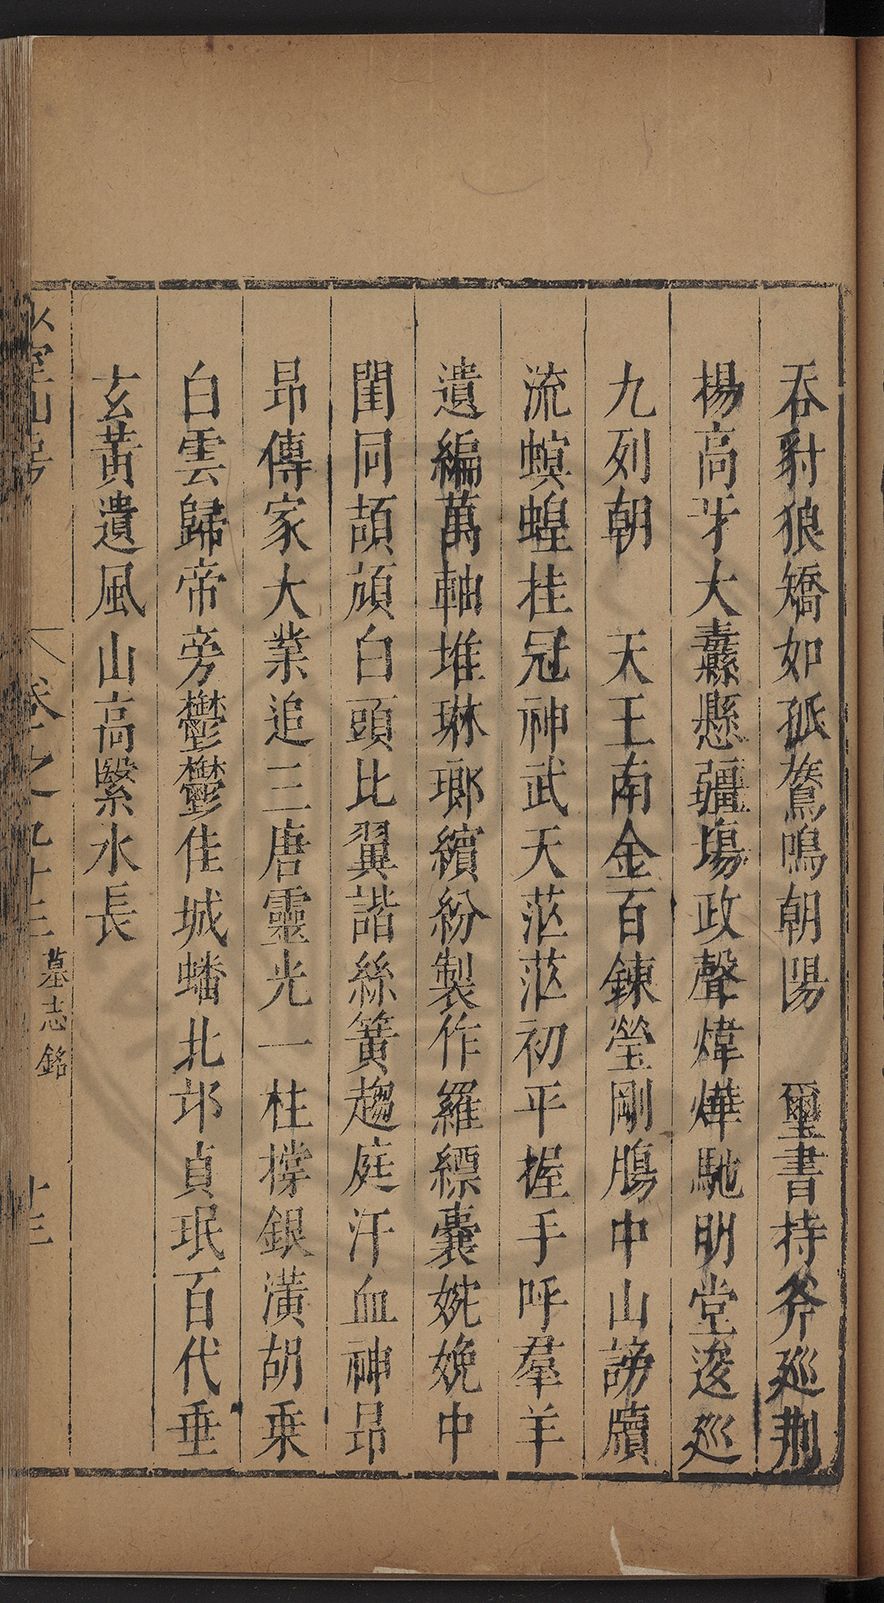 吞豺狼矯如孤鶱鳴朝陽　璽書持斧廵荆
楊高牙大纛懸疆塲政聲煒燁馳明堂逡廵
九列朝　天王南金百鍊瑩剛膓中山謗牘
流螟蝗挂冠神武天茫茫初平握手呼羣羊
遺編萬軸堆琳瑯繽紛製作羅縹囊婉娩中
閨同頡頏白頭比翼諧絲簧趨庭汗血神昂
昂傳家大業追三唐靈光一柱撐銀潢胡乘
白雲歸帝旁鬱鬱佳城蟠北邙貞珉百代垂
玄黃遺風山高繄水長
少室山房　卷之九十三　墓志銘　十三